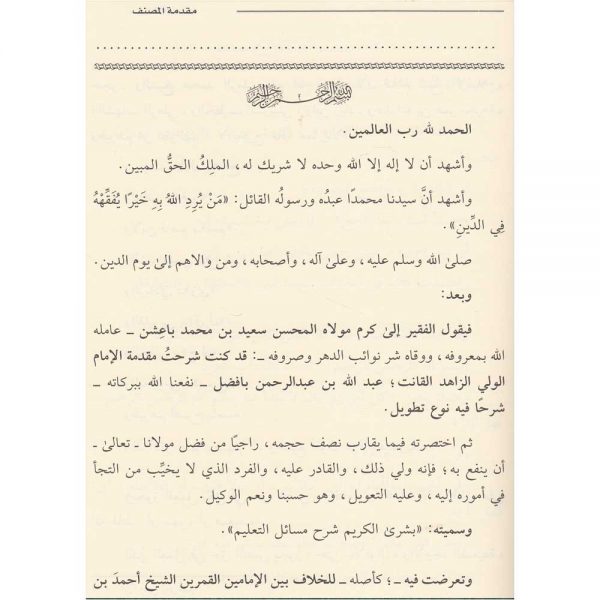 مقدمة المصنف
بسم الله الرحمن الرحيم
الحمد لله رب العالمين.
وأشهد أن لا إله إلا الله وحده لا شريك له، الملِكُ الحقُّ المبين.
وأشهد أنَّ سيدنا محمدًا عبدُه ورسولُه القائل: «مَنْ يُرِدِ اللهُ بِهِ خَيْرًا يُفَقِّهْهُ
فِي الدِّينِ».
صلىٰ الله وسلم عليه، وعلىٰ آله، وأصحابه، ومن والاهم إلىٰ يوم الدين.
وبعد:
فيقول الفقير إلىٰ كرم مولاه المحسن سعيد بن محمد باعِشن ـ عامله
الله بمعروفه، ووقاه شر نوائب الدهر وصروفه ـ: قد كنت شرحتُ مقدمة الإمام
الولي الزاهد القانت؛ عبد الله بن عبدالرحمن بافضل ـ نفعنا الله ببركاته ـ
شرحًا فيه نوع تطويل.
ثم اختصرته فيما يقارب نصف حجمه، راجيًا من فضل مولانا ـ تعالىٰ ـ
أن ينفع به؛ فإنه ولي ذلك، والقادر عليه، والفرد الذي لا يخيِّب من التجأ
في أموره إليه، وعليه التعويل، وهو حسبنا ونعم الوكيل.
وسميته: «بشرىٰ الكريم شرح مسائل التعليم».
وتعرضت فيه ـ؛ كأصله ـ للخلاف بين الإمامين القمرين الشيخ أحمدَ بن